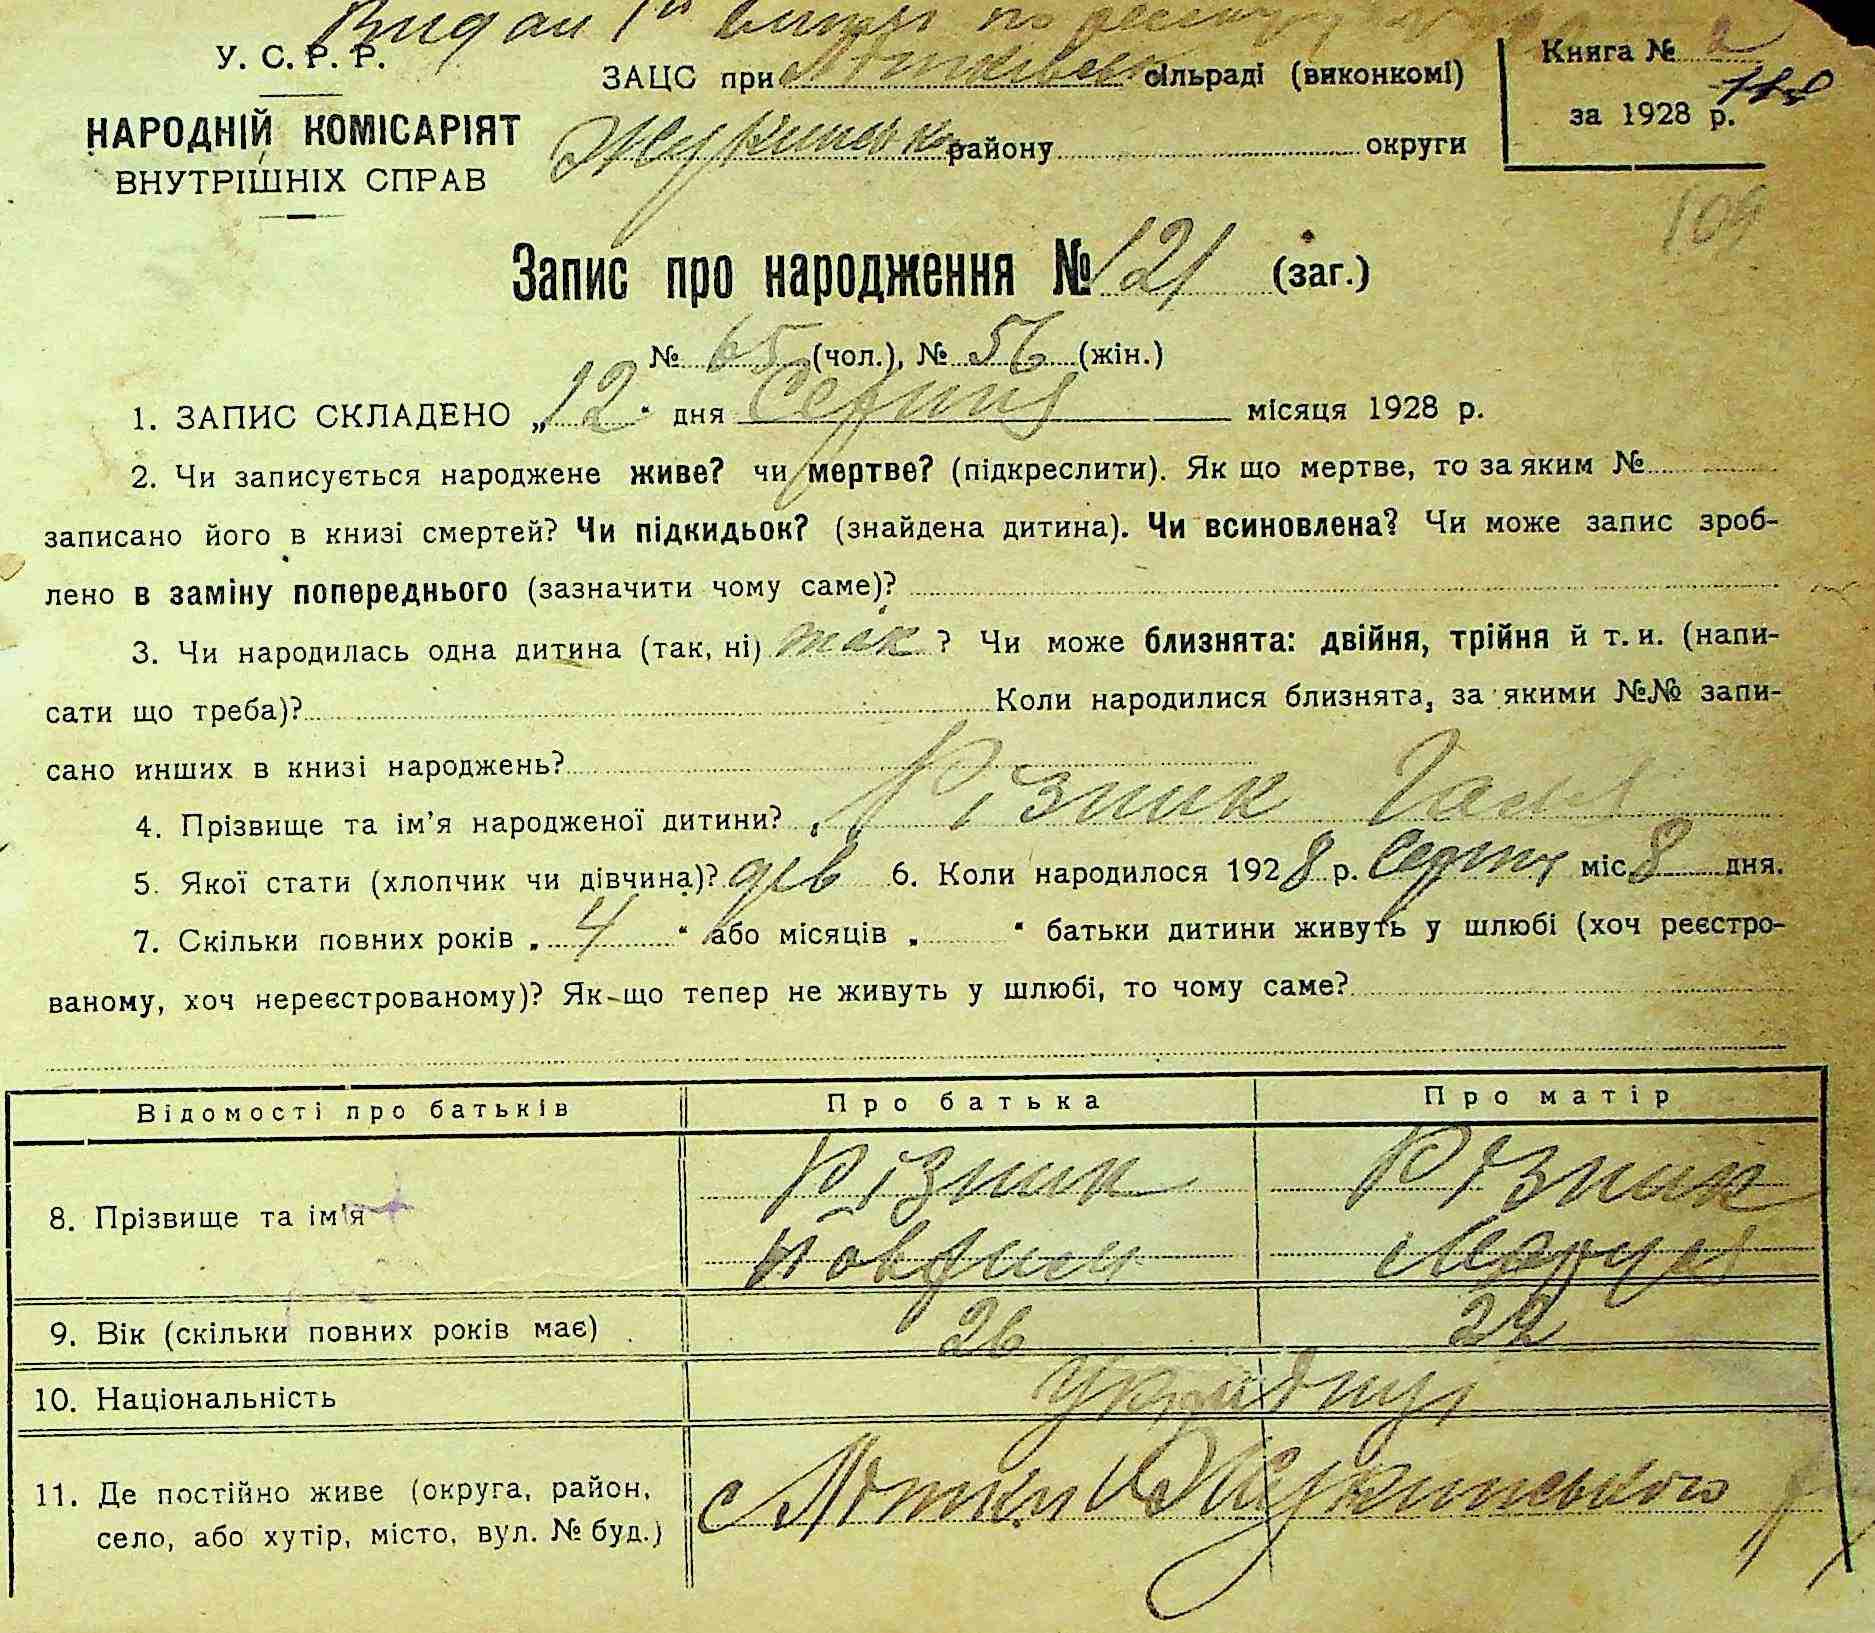 Видан
У. С. Р. Р.
НАРОДНІЙ КОМІСАРІЯТ
ВНУТРІШНІХ СПРАВ
ЗАЦС при сільраді (виконкомі)
Жукинсько району округи
Книга № 2
за 1928 р.
118
109
Запис про народження № 121 (заг.)
№ 65 (чол.), № 56 (жін.)
1. ЗАПИС СКЛАДЕНО „12“ дня Серпня місяця 1928 р.
2. Чи записується народжене живе? чи мертве? (підкреслити). Як що мертве, то за яким №
записано його в книзі смертей? Чи підкидьок? (знайдена дитина). Чи всиновлена? Чи може запис зроб-
лено в заміну попереднього (зазначити чому саме)?
3. Чи народилась одна дитина (так, ні) так ? Чи може близнята: двійня, трійня й т. и. (напи-
сати що треба)? Коли народилися близнята, за якими №№ запи-
сано инших в книзі народжень?
4. Прізвище та ім’я народженої дитини? Різник Ганя
5. Якої стати (хлопчик чи дівчина)? дів 6. Коли народилося 1928 р. Серпня міс 8 дня.
7. Скільки повних років „4“ або місяців „ “ батьки дитини живуть у шлюбі (хоч реєстро-
ваному, хоч нереєстрованому)? Як-що тепер не живуть у шлюбі, то чому саме?
Відомості про батьків Про батька Про матір
8. Прізвище та ім’я Різник Різник
Йовфим Марія
9. Вік (скільки повних років має) 26 22
10. Національність
11. Де постійно живе (округа, район,
село, або хутір, місто, вул. № буд.)
с Жукинського